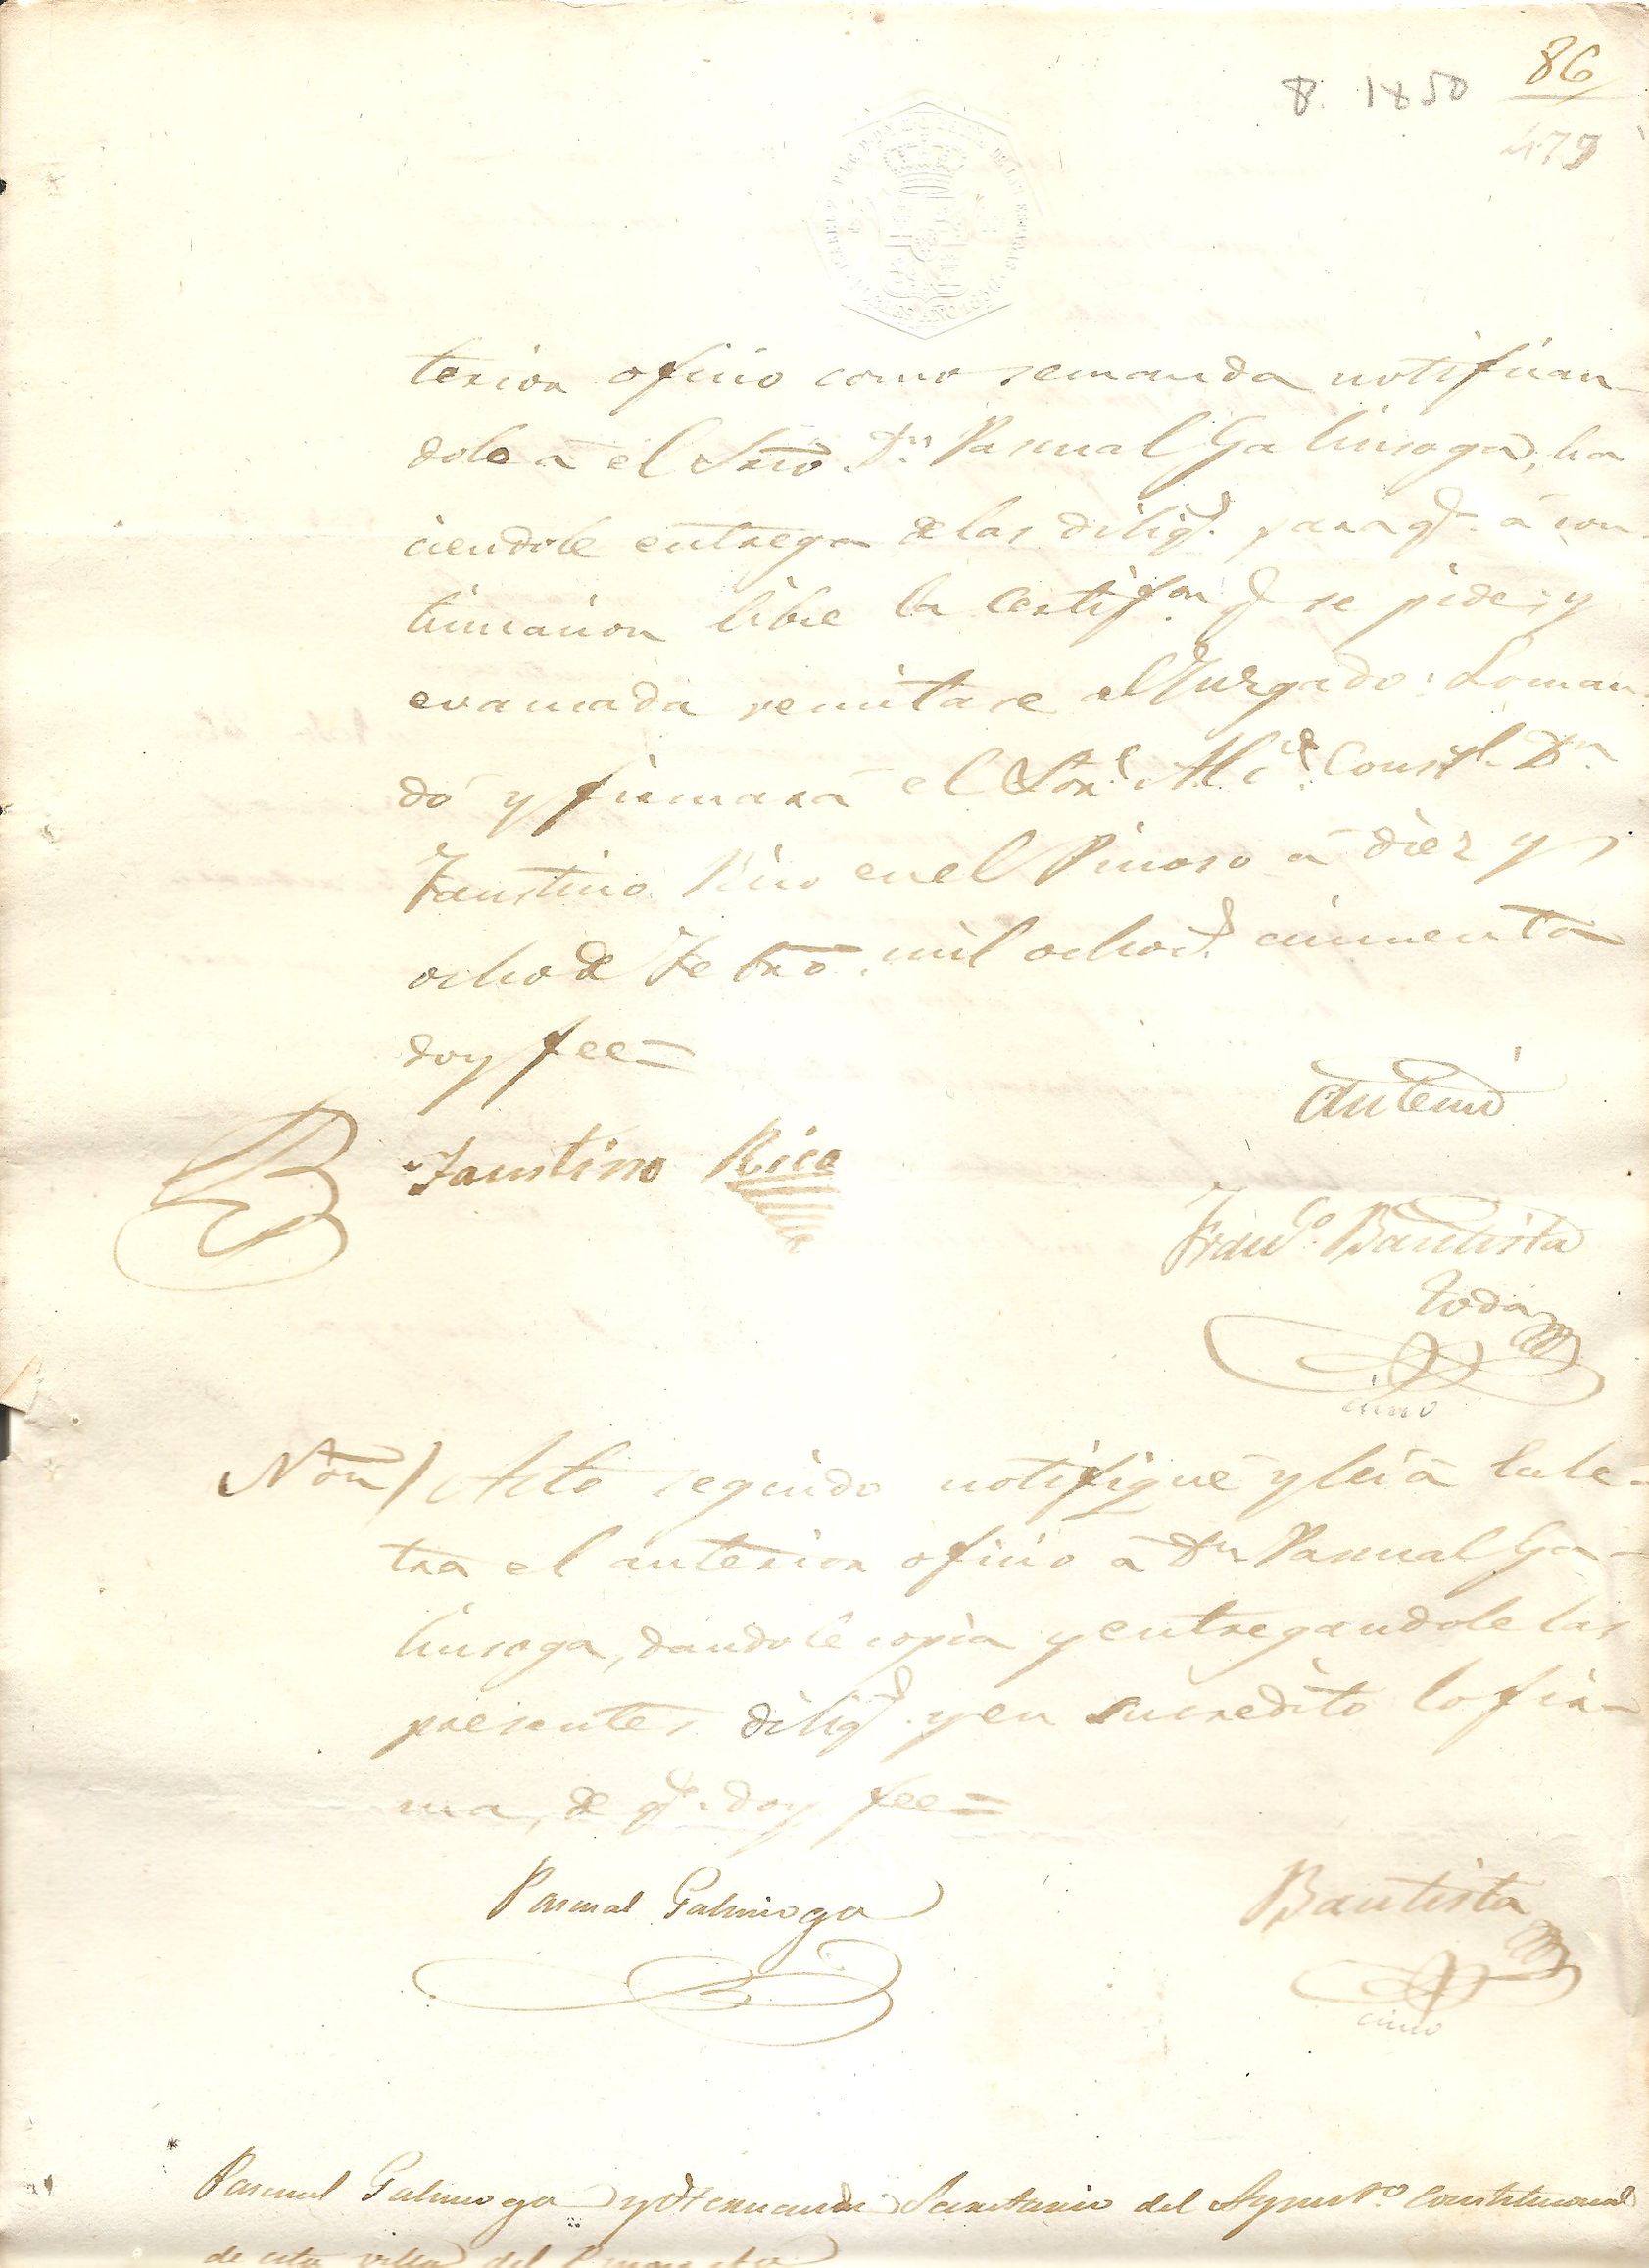 86
8. 1850
479
terior oficio como semanda notifican
dole a el Srio. Dn. Pascual Galinsoga, ha
ciendole entrega de las dilig.s para q.e á con
tinuacion libre la Certif.on q.e se pide; y
evacuada remitase al Juzgado: Loman
dó y firmará el Sor. Alc.e Const.l Dn.
Faustino Rico en el Pinoso á diez y
ocho de Febro. mil ochoc.s cincuenta
doy fee=
Antemi
Faustino Rico
Franc.o Bautista
Toda
cinco
Non / Acto seguido notifiqué y leí á lale-
tra el anterior oficio á Dn Pascual Ga-
linsoga, dandole copia y entregandole las
presentes dilig.s y en sucredito lo fir-
ma, de q.e doy fee=
Pascual Galinsoga
Bautista
cinco
Pascual Galinsoga y Hernandez Secretario del Ayunt.o Constitucional
de esta villa del Pinoso